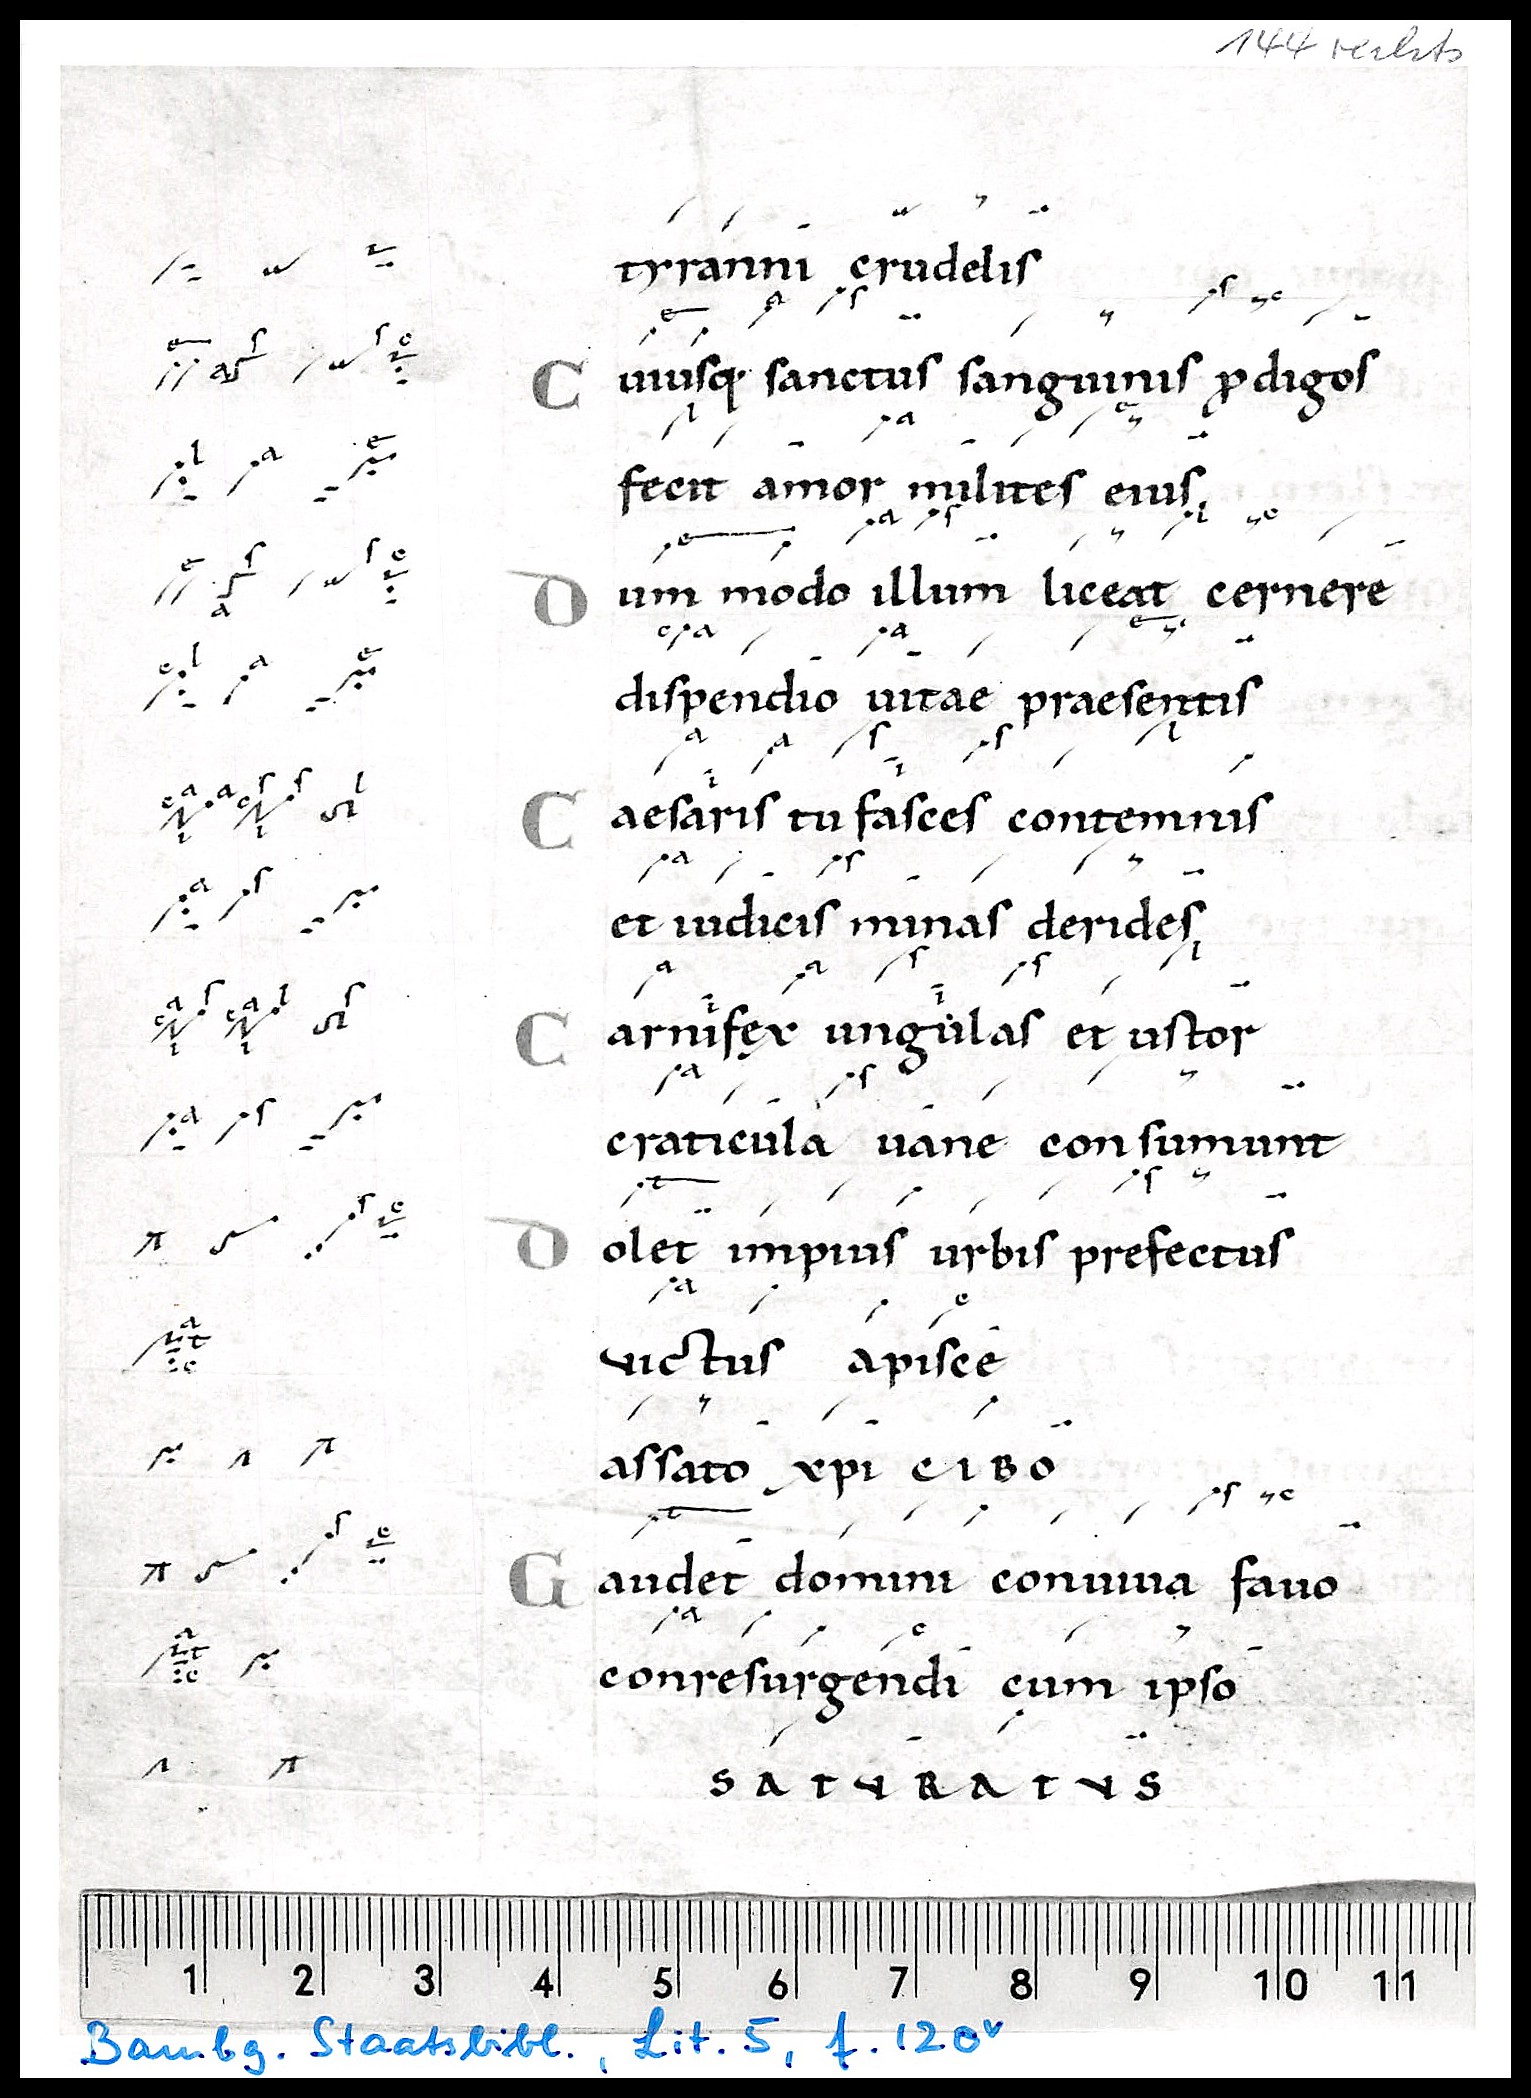 144 rechts
tyranni crudelis
Cuiusq; sanctus sanguinis ꝓdigos
fecit amor milites eius,
Dum modo illum liceat cernere
dispendio uitae praesentis
Caesaris tu fasces contemnis
et iudicis minas derides,
Carnifex ungulas et ustor
craticula uane consumunt
Dolet impius urbis prefectus
uictus a pisce
assato xpi CIBO
Gaudet domini conuiua fauo
conresurgendi cum ipso
SATURATUS
1 2 3 4 5 6 7 8 9 10 11
Bambg. Staatsbibl., Lit. 5, f. 120v